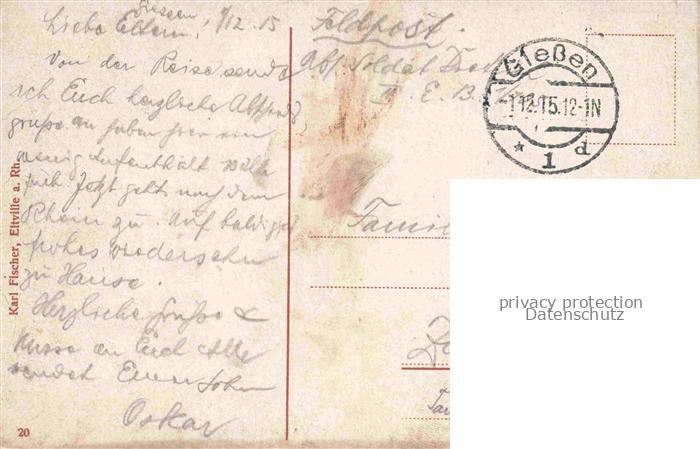 Giessen, 1/12.15
Liebe Eltern,
Von der Reise sende
ich Euch herzliche Abschieds
grüße. Wir haben hier ein
wenig Aufenthalt
Jetzt geht nach dem
Rhein zu. Auf baldiges
frohes wiedersehn
zu Hause.
Herzliche Grüsse &
Küsse an Euch Alle
sendet Euer Sohn
Oskar
Feldpost.
Abs. Soldat
II. E. B.
Gießen
-1.12.15.12-1N
* 1 d
Famil
Karl Fischer, Eltville a. Rh.
20
privacy protection
Datenschutz